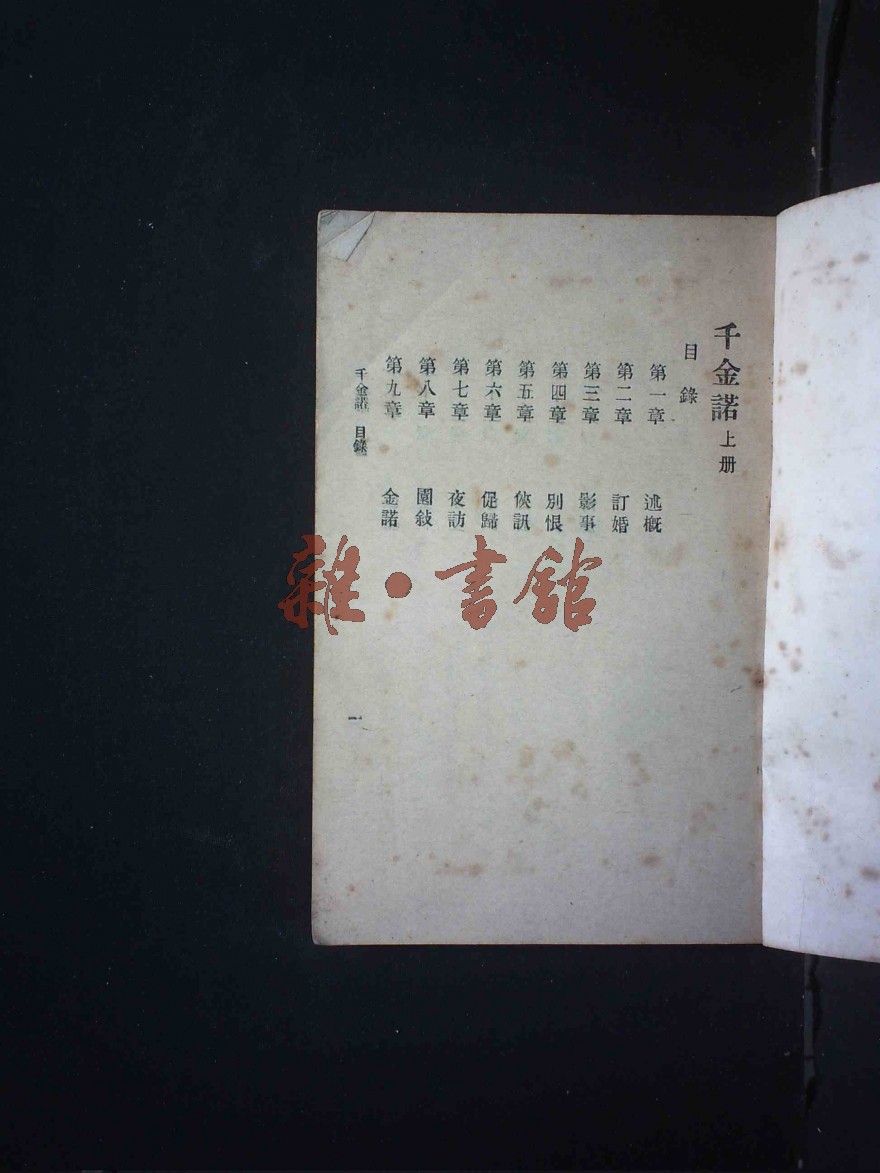 千金諾 上册
目錄
第一章 述概
第二章 訂婚
第三章 影事
第四章 別恨
第五章 俠訊
第六章 促歸
第七章 夜訪
第八章 圍敍
第九章 金諾
千金諾 目錄
一
雜·書館